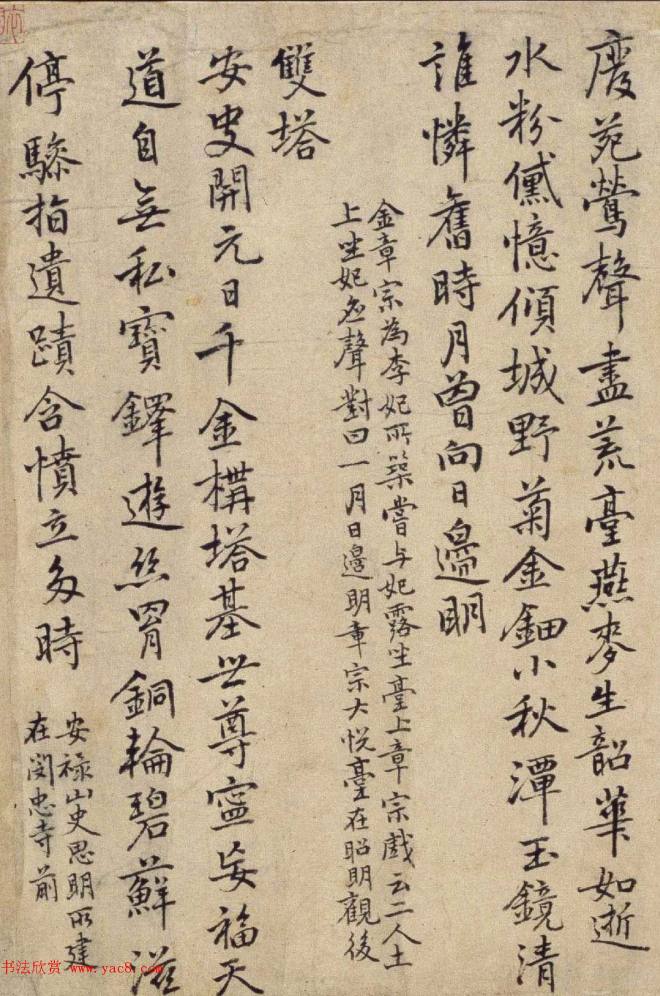 廢苑鶯聲盡荒臺燕麥生韶華如逝
水粉黛憶傾城野菊金鈿小秋潭玉鏡清
誰憐舊時月曾向日邊明
金章宗為李妃所築嘗与妃露坐臺上章宗戲云二人土
上坐妃應聲對曰一月日邊明章宗大悅臺在昭明觀後
雙塔
安史開元日千金構塔基世尊寧妄福天
道自無私寶鐸遊絲罥銅輪碧蘚滋
停驂指遺蹟含憤立多時
安祿山史思明所建
在閔忠寺前
书法欣赏 www.yac8.com